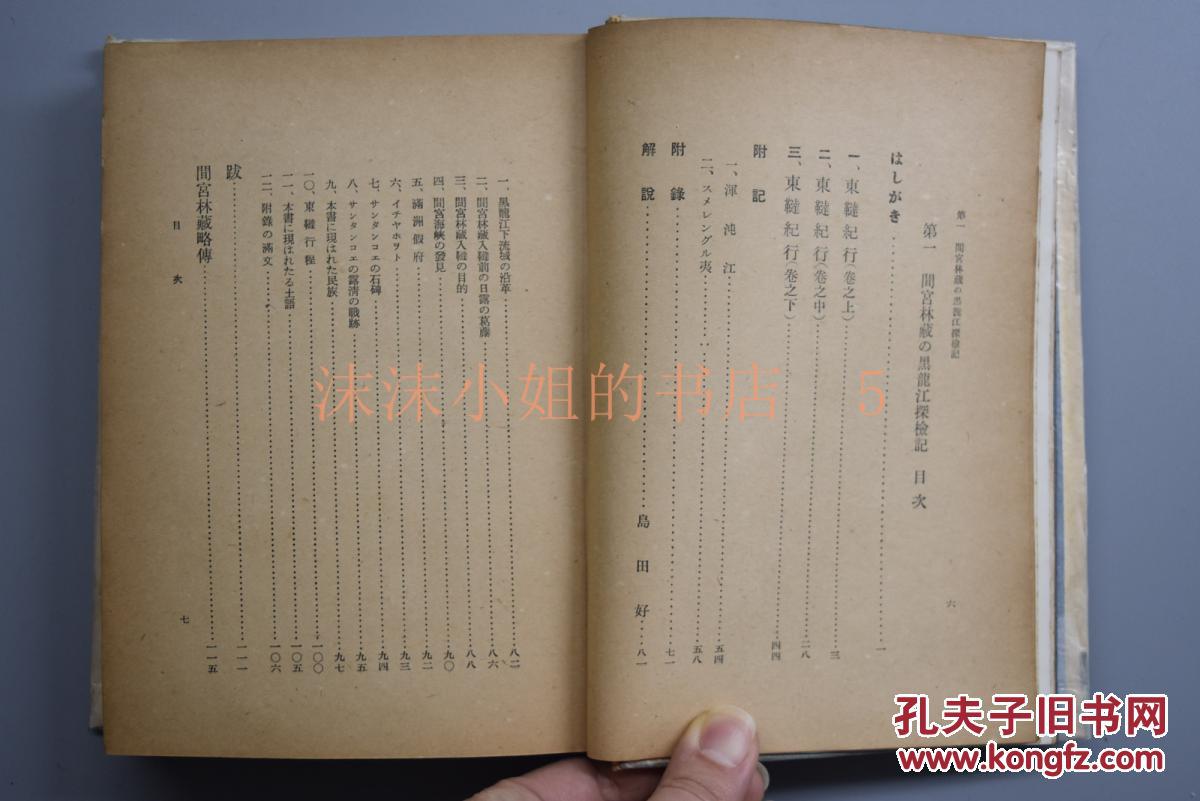 第一 間宮林蔵の黒龍江探檢記
六
第一 間宮林蔵の黒龍江探檢記 目次
はしがき……一
一、東韃紀行(卷之上)……三
二、東韃紀行(卷之中)……二八
三、東韃紀行(卷之下)……四四
附記
一、渾沌江……五四
二、スメレングル夷……五八
附錄……七一
解說……島田好……八一
一、黑龍江下流域の沿革……八二
二、間宮林藏入韃前の日露の葛藤……八六
三、間宮林藏入韃の目的……八八
四、間宮海峽の發見……九〇
五、滿洲假府……九二
六、イチヤホヲト……九三
七、サンタンコエの石碑……九四
八、サンタンコエの露淸の戰跡……九五
九、本書に現はれた民族……九七
一〇、東韃行程……一〇〇
一一、本書に現はれたる土語……一〇五
一二、附錄の滿文……一〇六
跋……一一一
間宮林藏略傳……一一五
目次
七
沫沫小姐的书店 5
孔夫子旧书网
www.kongfz.com